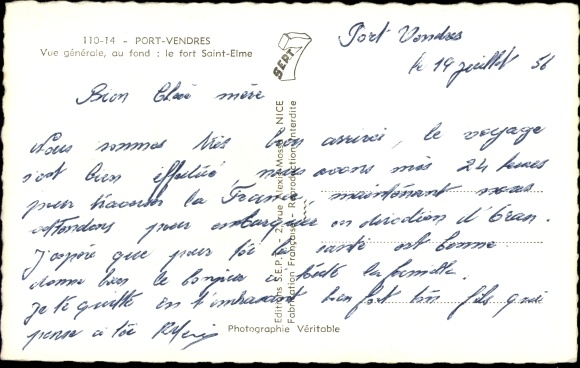 110-14 - PORT-VENDRES
Vue générale, au fond : le fort Saint-Elme
SEPT
Port Vendres
le 19 juillet 56
Bien Chère mère
Nous sommes très bien arrivé, le voyage
s'est bien effectué nous avons mis 24 heures
pour traverser la France, maintenant nous
attendons pour embarquer en direction d'Oran.
J'espère que pour toi la santé est bonne
donne bien le bonjour à toute la famille.
Je te quitte en t'embrassant bien fort ton fils qui
pense à toi
Editions S.E.P.T. - 2, rue Alexis-Mossa, NICE
Fabrication Française - Reproduction Interdite
Photographie Véritable